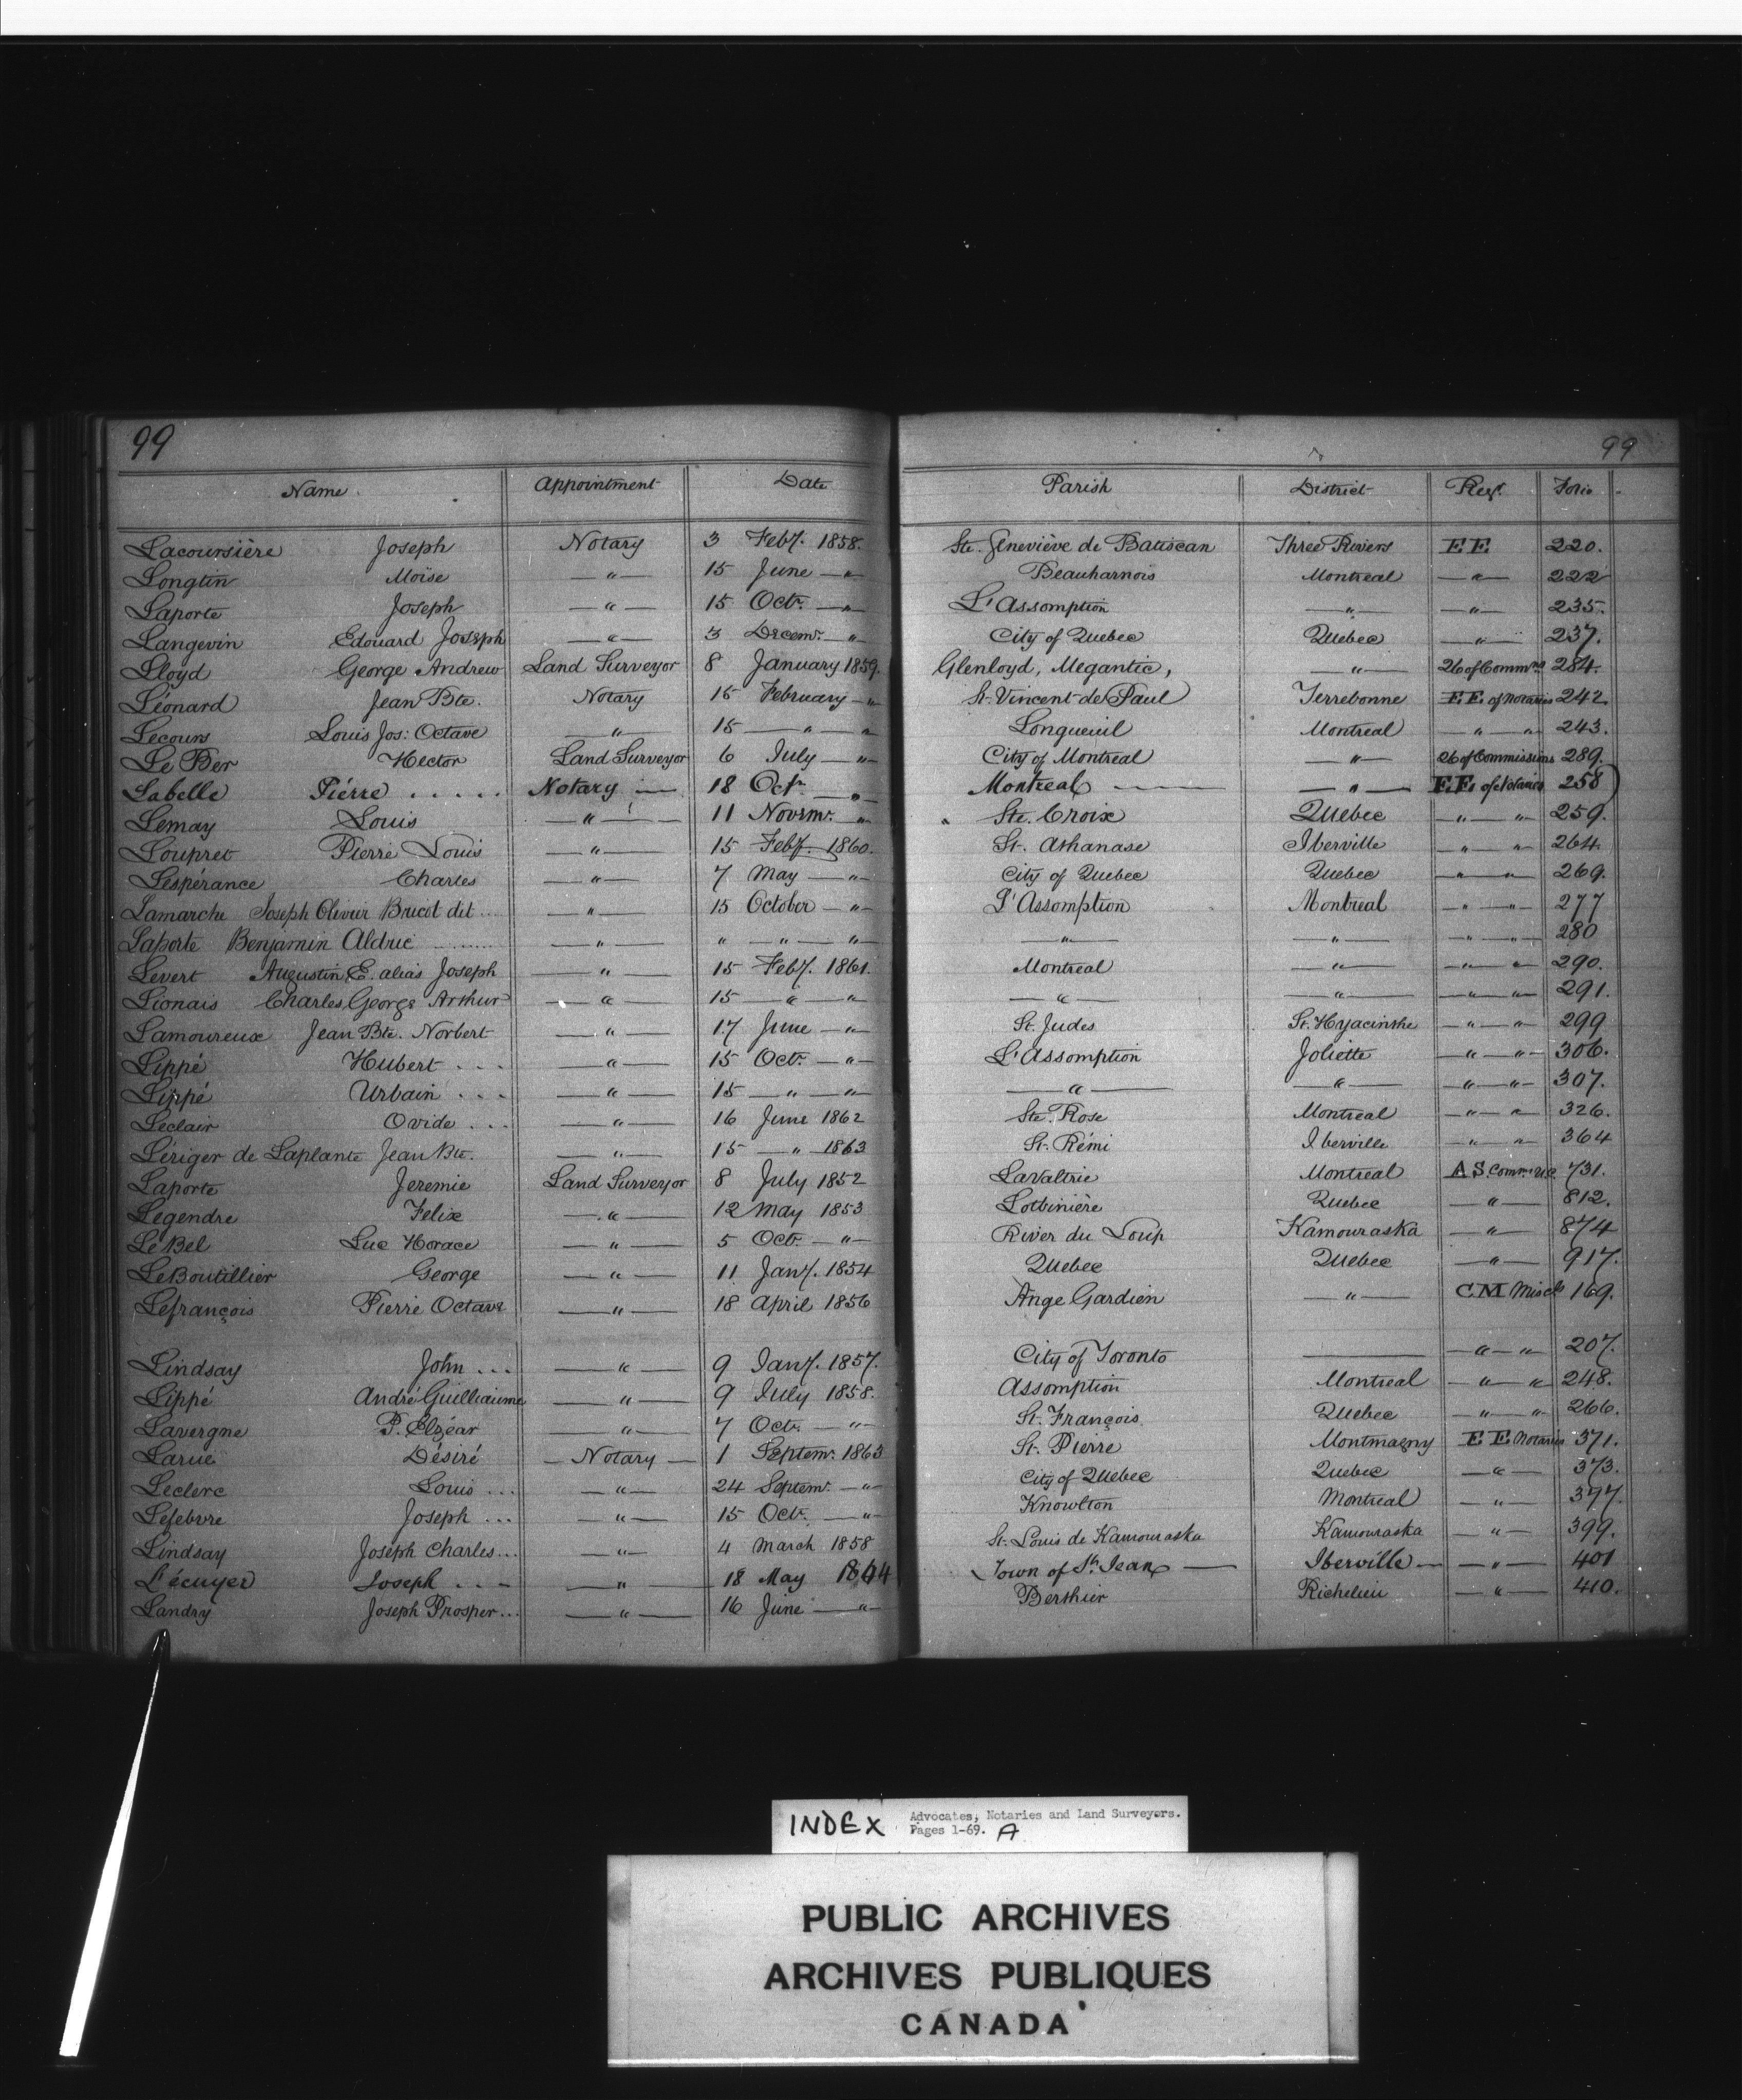 99 99
Name. Appointment Date Parish District Regr. Folio
Lacoursière Joseph Notary 3 Feby. 1858. Ste. Geneviève de Batiscan Three Rivers EE 220.
Longtin Moïse — " — 15 June — " — Beauharnois Montreal — " — 222
Laporte Joseph — " — 15 Octr. — " — L'Assomption — " — — " — 235.
Langevin Edouard Joseph — " — 3 Decemr. — " — City of Quebec Quebec — " — 237.
Lloyd George Andrew Land Surveyor 8 January 1859. Glenloyd, Megantic, — " — 26 of Commns 284.
Léonard Jean Bte. Notary 15 February — " — St. Vincent de Paul Terrebonne EE of Notaries 242
Lecours Louis Jos: Octave — " — 15 — " — " — Longueuil Montreal — " — " — 243.
Le Ber Hector Land Surveyor 6 July — " — City of Montreal — " — 26 of Commissions 289.
Labelle Piérre ..... Notary — 18 Octr. — " — Montreal — — " — EE of Notaries 258)
Lemay Louis — " — 11 Novemr. — " — Ste. Croix Quebec — " — " — 259.
Loupret Pierre Louis — " — 15 Feby. 1860. St. Athanase Iberville — " — " — 264.
Lespérance Charles — " — 7 May — " — City of Quebec Quebec — " — " — 269.
Lamarche Joseph Olivier Bricot dit ... — " — 15 October — " — L'Assomption Montreal — " — " — 277
Laporte Benjamin Aldric ........ — " — " — " — " — — " — — " — — " — " — 280
Levert Augustin E. alias Joseph — " — 15 Feby. 1861. Montreal — " — — " — " — 290.
Lionais Charles George Arthur — " — 15 — " — " — — " — — " — — " — " — 291.
Lamoureux Jean Bte. Norbert — " — 17 June — " — St. Judes St. Hyacinthe — " — " — 299
Lippé Hubert ... — " — 15 Octr. — " — L'Assomption Joliette — " — " — 306.
Lippé Urbain ... — " — 15 — " — " — — " — — " — — " — " — 307.
Leclair Ovide ... — " — 16 June 1862 Ste. Rose Montreal — " — " — 326.
Lériger de Laplante Jean Bte. — " — 15 — " 1863 St. Rémi Iberville — " — " — 364
Laporte Jeremie Land Surveyor 8 July 1852 Lavaltrie Montreal A S Comm: 731.
Legendre Felix — " — 12 May 1853 Lotbinière Quebec — " — 812.
LeBel Luc Horace — " — 5 Octr. — " — River du Loup Kamouraska — " — 874
LeBoutillier George — " — 11 Jany. 1854 Quebec Quebec — " — 917.
Lefrançois Pierre Octave — " — 18 April 1856 Ange Gardien — " — C.M Miscls 169.
Lindsay John ... — " — 9 Jany. 1857. City of Toronto — — " — " — 207.
Lippé André Guilliaume — " — 9 July 1858. Assomption Montreal — " — " 248.
Lavergne P. Elzéar — " — 7 Octr. — " — St. François. Quebec — " — " — 266.
Larue Désiré — Notary — 1 Septem. 1863 St. Pierre Montmagny E E Notaries 371.
Leclerc Louis ... — " — 24 Septem. — " — City of Quebec Quebec — " — 373.
Lefebvre Joseph ... — " — 15 Octr. — " — Knowlton Montreal — " — 397.
Lindsay Joseph Charles... — " — 4 March 1858 St. Louis de Kamouraska Kamouraska — " — 399.
L'écuyer Joseph ... — " — 18 May 1864 Town of St. Jean — Iberville — — " — 401
Landry Joseph Prosper... — " — 16 June — " — Berthier Richelieu — " — 410.
INDEX Advocates, Notaries and Land Surveyors.
Pages 1-69. A
PUBLIC ARCHIVES
ARCHIVES PUBLIQUES
CANADA